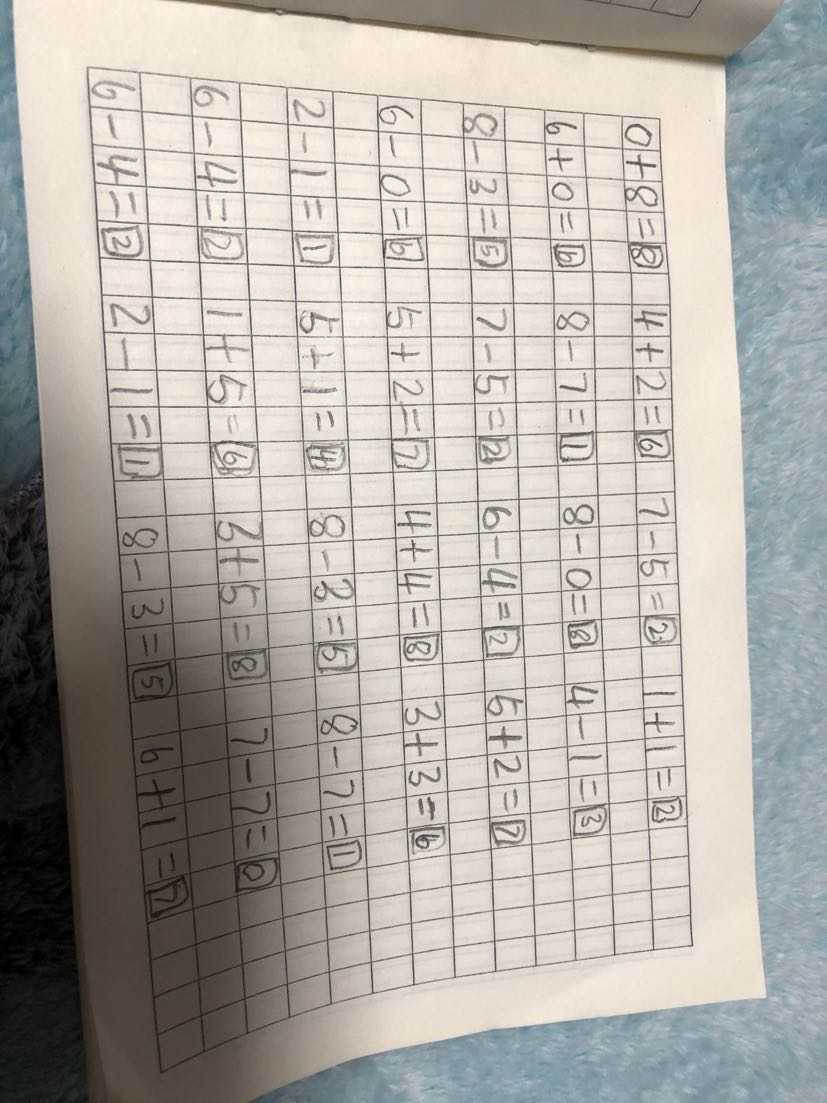 0+8=8 4+2=6 7-5=2 1+1=2
6+0=6 8-7=1 8-0=8 4-1=3
8-3=5 7-5=2 6-4=2 5+2=7
6-0=6 5+2=7 4+4=8 3+3=6
2-1=1 5+1=4 8-3=5 8-7=1
6-4=2 1+5=6 3+5=8 7-7=0
6-4=2 2-1=1 8-3=5 6+1=7